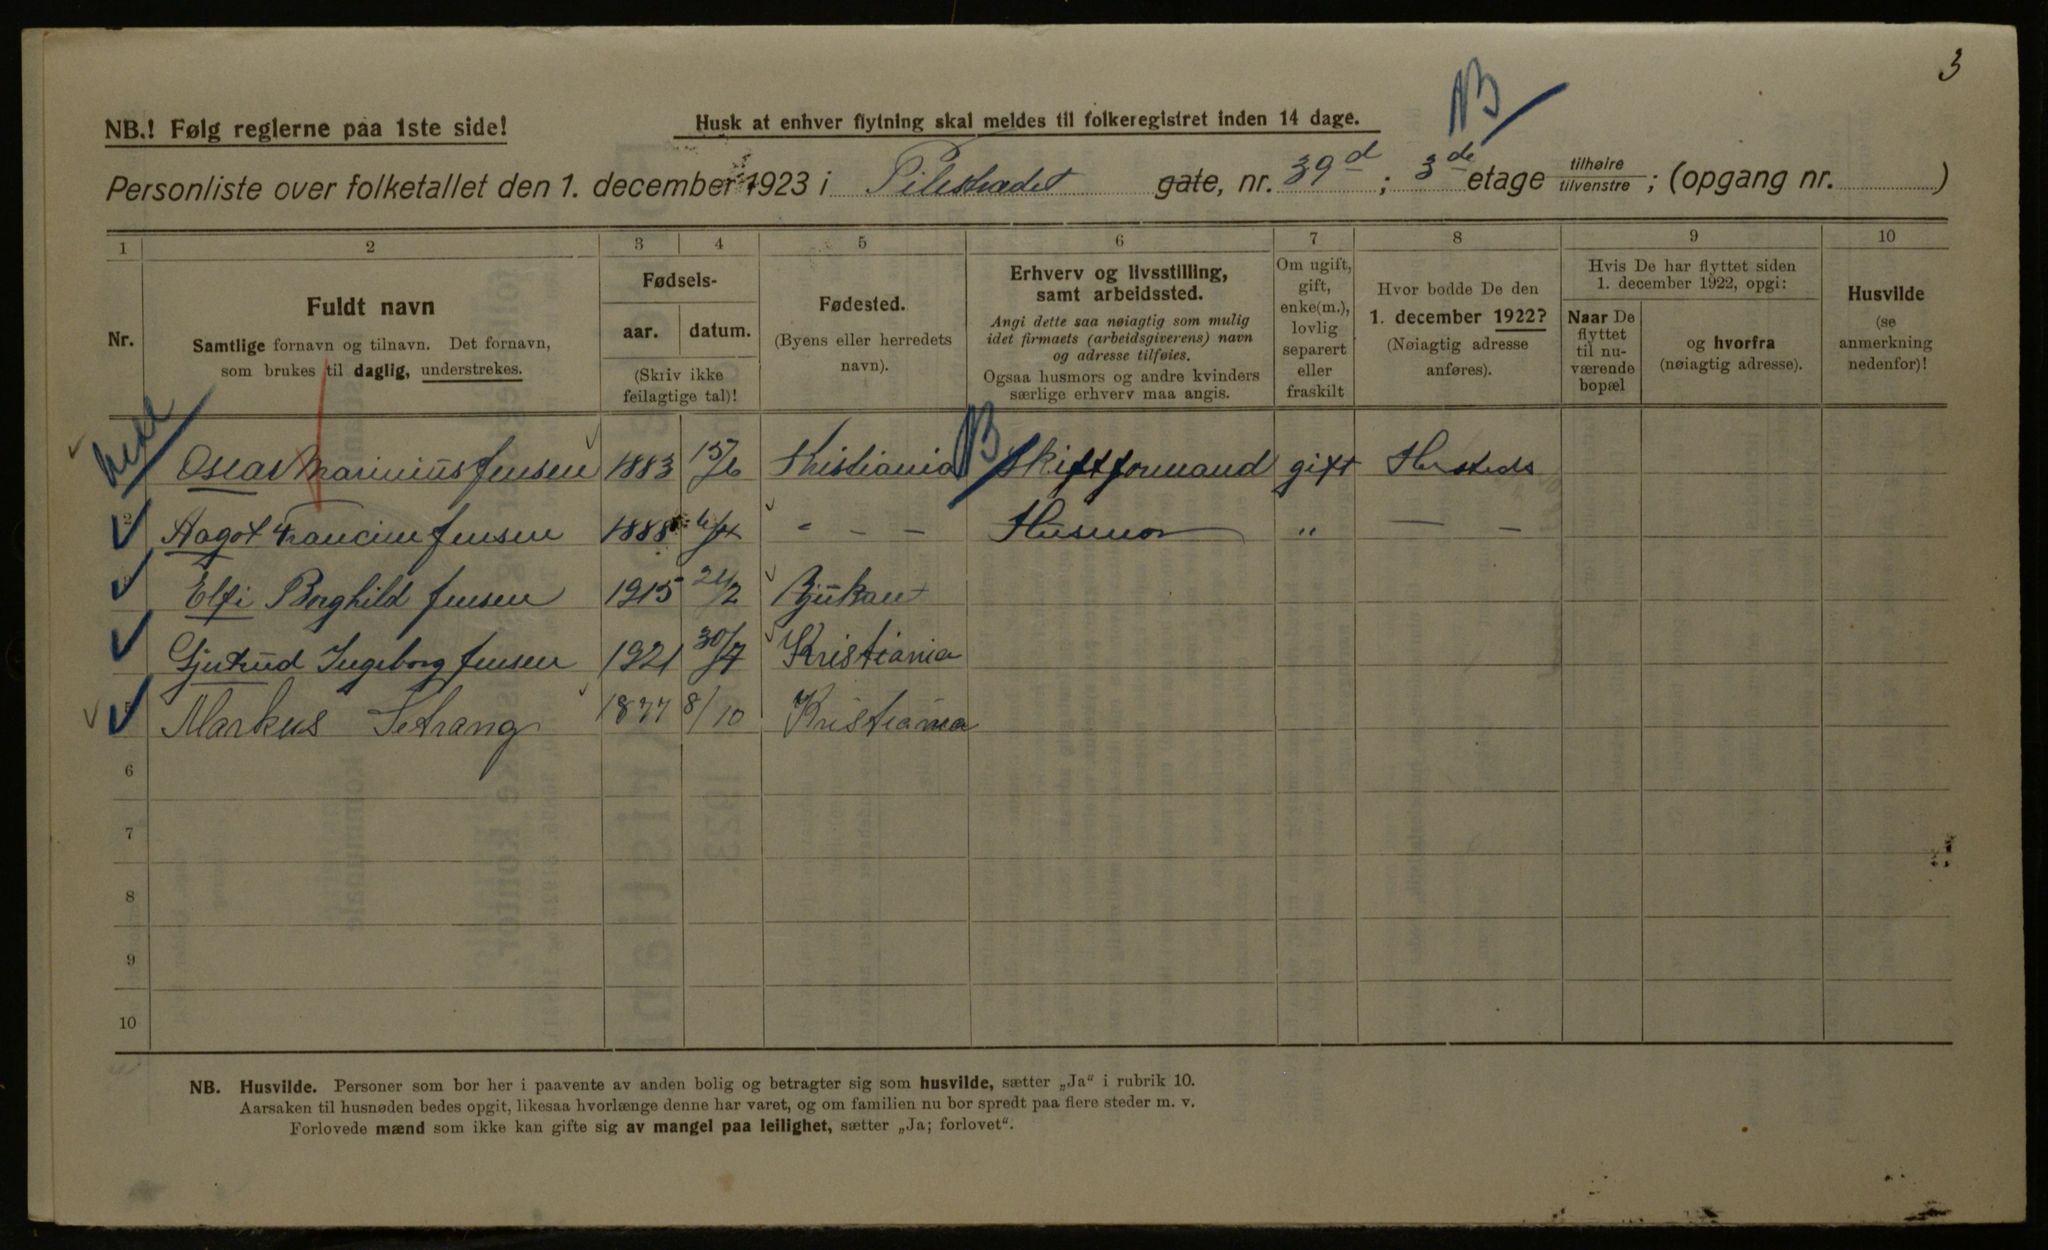 3
NB
NB.! Følg reglerne paa 1ste side!
Husk at enhver flytning skal meldes til folkeregistret inden 14 dage.
Personliste over folketallet den 1. december 1923 i Pilestradet gate, nr. 39d; 3de etage tilhøire tilvenstre; (opgang nr. )
1 2 3 4 5 6 7 8 9 10
Nr.
Fuldt navn
Samtlige fornavn og tilnavn. Det fornavn,
som brukes til daglig, understrekes.
Fødsels-
aar. datum.
(Skriv ikke
feilagtige tal)!
Fødested.
(Byens eller herredets
navn).
Erhverv og livsstilling,
samt arbeidssted.
Angi dette saa nøiagtig som mulig
idet firmaets (arbeidsgiverens) navn
og adresse tilføies.
Ogsaa husmors og andre kvinders
særlige erhverv maa angis.
Om ugift,
gift,
enke(m.),
lovlig
separert
eller
fraskilt
Hvor bodde De den
1. december 1922?
(Nøiagtig adresse
anføres).
Hvis De har flyttet siden
1. december 1922, opgi:
Naar De
flyttet
til nu-
værende
bopæl
og hvorfra
(nøiagtig adresse).
Husvilde
(se
anmerkning
nedenfor)!
Oscar Marinius Jensen 1883 15/6 Kristiania NB Skiftformand gift Hersteds
2 Aagot Francine Jensen 1888 - - - Husmor " — -
Elfi Borghild Jensen 1915 21/2 Rjukan
Gjertrud Ingeborg Jensen 1921 30/7 Kristiania
5 Markus Setrang 1877 8/10 Kristiania
6
7
8
9
10
NB. Husvilde. Personer som bor her i paavente av anden bolig og betragter sig som husvilde, sætter „Ja“ i rubrik 10.
Aarsaken til husnøden bedes opgit, likesaa hvorlænge denne har varet, og om familien nu bor spredt paa flere steder m. v.
Forlovede mænd som ikke kan gifte sig av mangel paa leilighet, sætter „Ja; forlovet“.